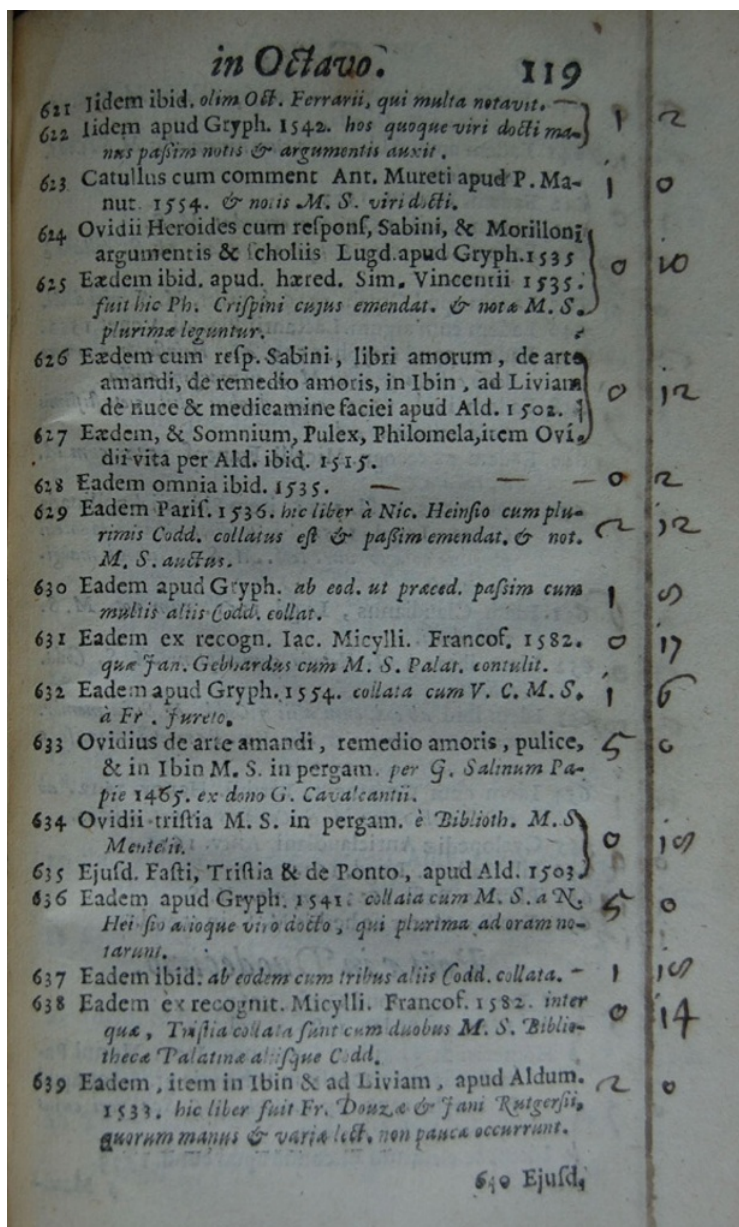 in Octavo. 119
621 Iidem ibid. olim Oct. Ferrarii, qui multa notavit. —
622 Iidem apud Gryph. 1542. hos quoque viri docti ma- 1 2
nus paſſim notis & argumentis auxit.
623 Catullus cum comment Ant. Mureti apud P. Ma- 1 0
nut. 1554. & notis M. S. viri docti.
624 Ovidii Heroides cum reſponſ, Sabini, & Morilloni
argumentis & ſcholiis Lugd. apud Gryph. 1535 0 10
625 Eædem ibid. apud. hæred. Sim. Vincentii 1535.
fuit hic Ph. Criſpini cujus emendat. & notæ M. S.
plurimæ leguntur.
626 Eædem cum reſp. Sabini, libri amorum, de arte
amandi, de remedio amoris, in Ibin, ad Liviam 0 12
de nuce & medicamine faciei apud Ald. 1502.
627 Eædem, & Somnium, Pulex, Philomela, item Ovi-
dii vita per Ald. ibid. 1515.
628 Eadem omnia ibid. 1535. — — — 0 2
629 Eadem Pariſ. 1536. hic liber à Nic. Heinſio cum plu-
rimis Codd. collatus eſt & paſſim emendat. & not. 2 12
M. S. auctus.
630 Eadem apud Gryph. ab eod. ut præced. paſſim cum 1
multis aliis Codd. collat.
631 Eadem ex recogn. Iac. Micylli. Francof. 1582. 0 17
quæ Jan. Gebhardus cum M. S. Palat. contulit.
632 Eadem apud Gryph. 1554. collata cum V. C. M. S. 1 6
à Fr. Jureto.
633 Ovidius de arte amandi, remedio amoris, pulice, 5 0
& in Ibin M. S. in pergam. per G. Salinum Pa-
pie 1465. ex dono G. Cavalcantii.
634 Ovidii triſtia M. S. in pergam. è Biblioth. M. S
Mentelii. 0
635 Ejuſd. Faſti, Triſtia & de Ponto, apud Ald. 1503.
636 Eadem apud Gryph. 1541. collata cum M. S. a N. 5 0
Heinſio alioque viro docto, qui plurima ad oram no-
tarunt.
637 Eadem ibid. ab eodem cum tribus aliis Codd. collata. - 1
638 Eadem ex recognit. Micylli. Francof. 1582. inter 0 14
quæ, Triſtia collata ſunt cum duobus M. S. Biblio-
thecæ Palatinæ aliiſque Codd.
639 Eadem, item in Ibin & ad Liviam, apud Aldum. 2 0
1533. hic liber fuit Fr. Douzæ & Jani Rutgerſii,
quorum manus & variæ lect. non paucæ occurrunt.
640 Ejuſd.